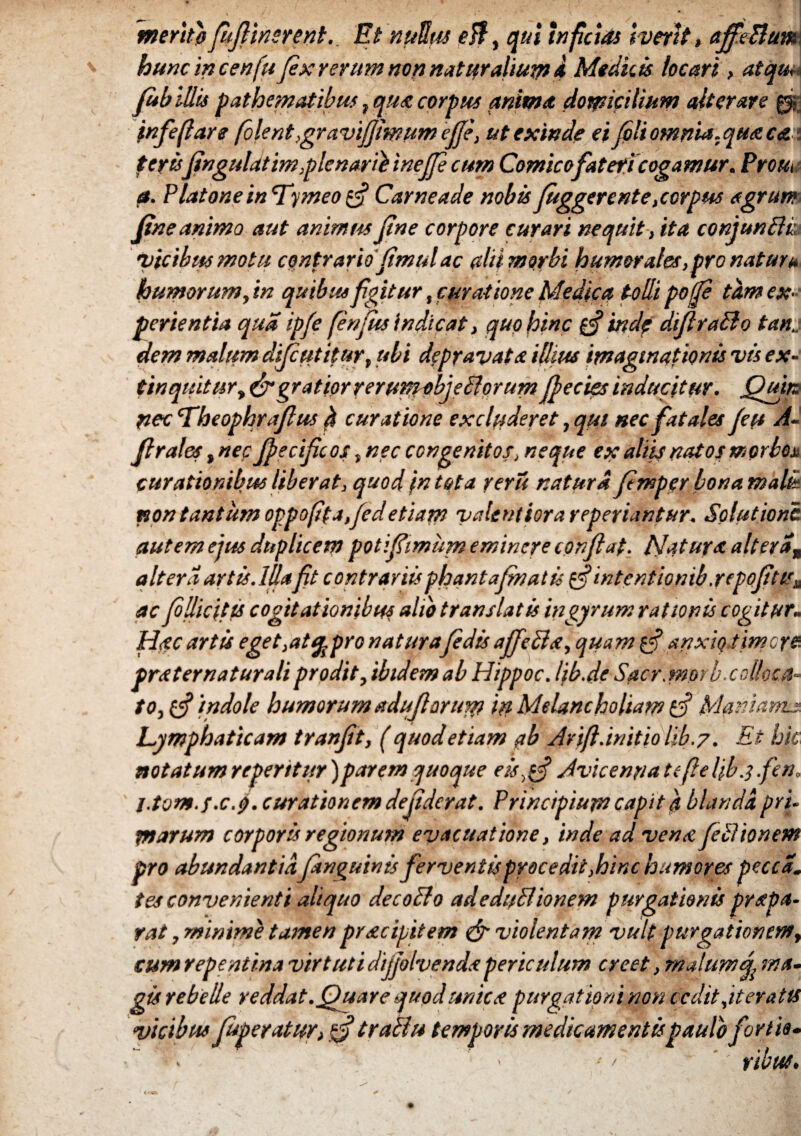 merito ſuſtinerent. Et nullus eſt, qui inficias iverit, affectum
hunc in cenſu ſex rerum non naturalium à Medicis locari, atqu
ſub illis pathematibus, quæ corpus animæ domicilium alterare &
infeſtare ſolent, graviſſimum eſſe, ut exinde ei ſoli omnia, quæ cæ
teris ſingulatim, plenariè ineſſe cum Comico fateri cogamur. Prout
a. Platone in Tymeo & Carneade nobis ſuggerente, corpus ægrum
ſine animo aut animus ſine corpore curari nequit, ita conjunctis
vicibus motu contrario ſimul ac alii morbi humorales, pro natura
humorum, in quibus figitur, curatione Medica tolli poſſe tàm ex-
perientia quã ipſe ſenſus indicat, quo hinc & inde diſtracto tan-
dem malum diſcutitur, ubi depravata illius imaginationis vis ex-
tinquitur, & gratior rerum objectorum ſpecies inducitur. Quin
nec Theophraſtus à curatione excluderet, qui nec fatales ſeu A-
ſtrales, nec ſpecificos, nec congenitos, neque ex aliis natos morbos
curationibus liberat, quod in tota rerũ naturâ ſemper bona malis
non tantùm oppoſita, ſed etiam valentiora reperiantur. Solutionẽ
autem ejus duplicem potiſſimùm eminere conſtat. Naturæ alterã,
alterã artis. Illa fit contrariis phantaſmatis & intentionib. repoſitis,
ac ſollicitis cogitationibus aliò translatis in gyrum rationis cogitur.
Hæc artis eget, atq; pro natura ſedis affectæ, quam & anxio timore
præternaturali prodit, ibidem ab Hippoc. lib. de Sacr. morb. colloca-
to, & indole humorum aduſtorum in Melancholiam & Maniam
Lymphaticam tranſit, (quod etiam ab Ariſt. initio lib. 7. Et hic
notatum reperitur) parem quoque eis, & Avicenna teſte lib. 3. fen.
1. tom. 5. c. 9. curationem deſiderat. Principium capit à blandâ pri-
marum corporis regionum evacuatione, inde ad venæ ſectionem
pro abundantiâ ſanguinis ferventis procedit, hinc humores peccã-
tes convenienti aliquo decocto ad eductionem purgationis præpa-
rat, minimè tamen præcipitem & violentam vult purgationem,
cum repentina virtuti diſſolvendæ periculum creet, malumq; ma-
gis rebelle reddat. Quare quod unicæ purgationi non cedit, iteratis
vicibus ſuperatur, & tractu temporis medicamentis paulò fortio-
ribus.